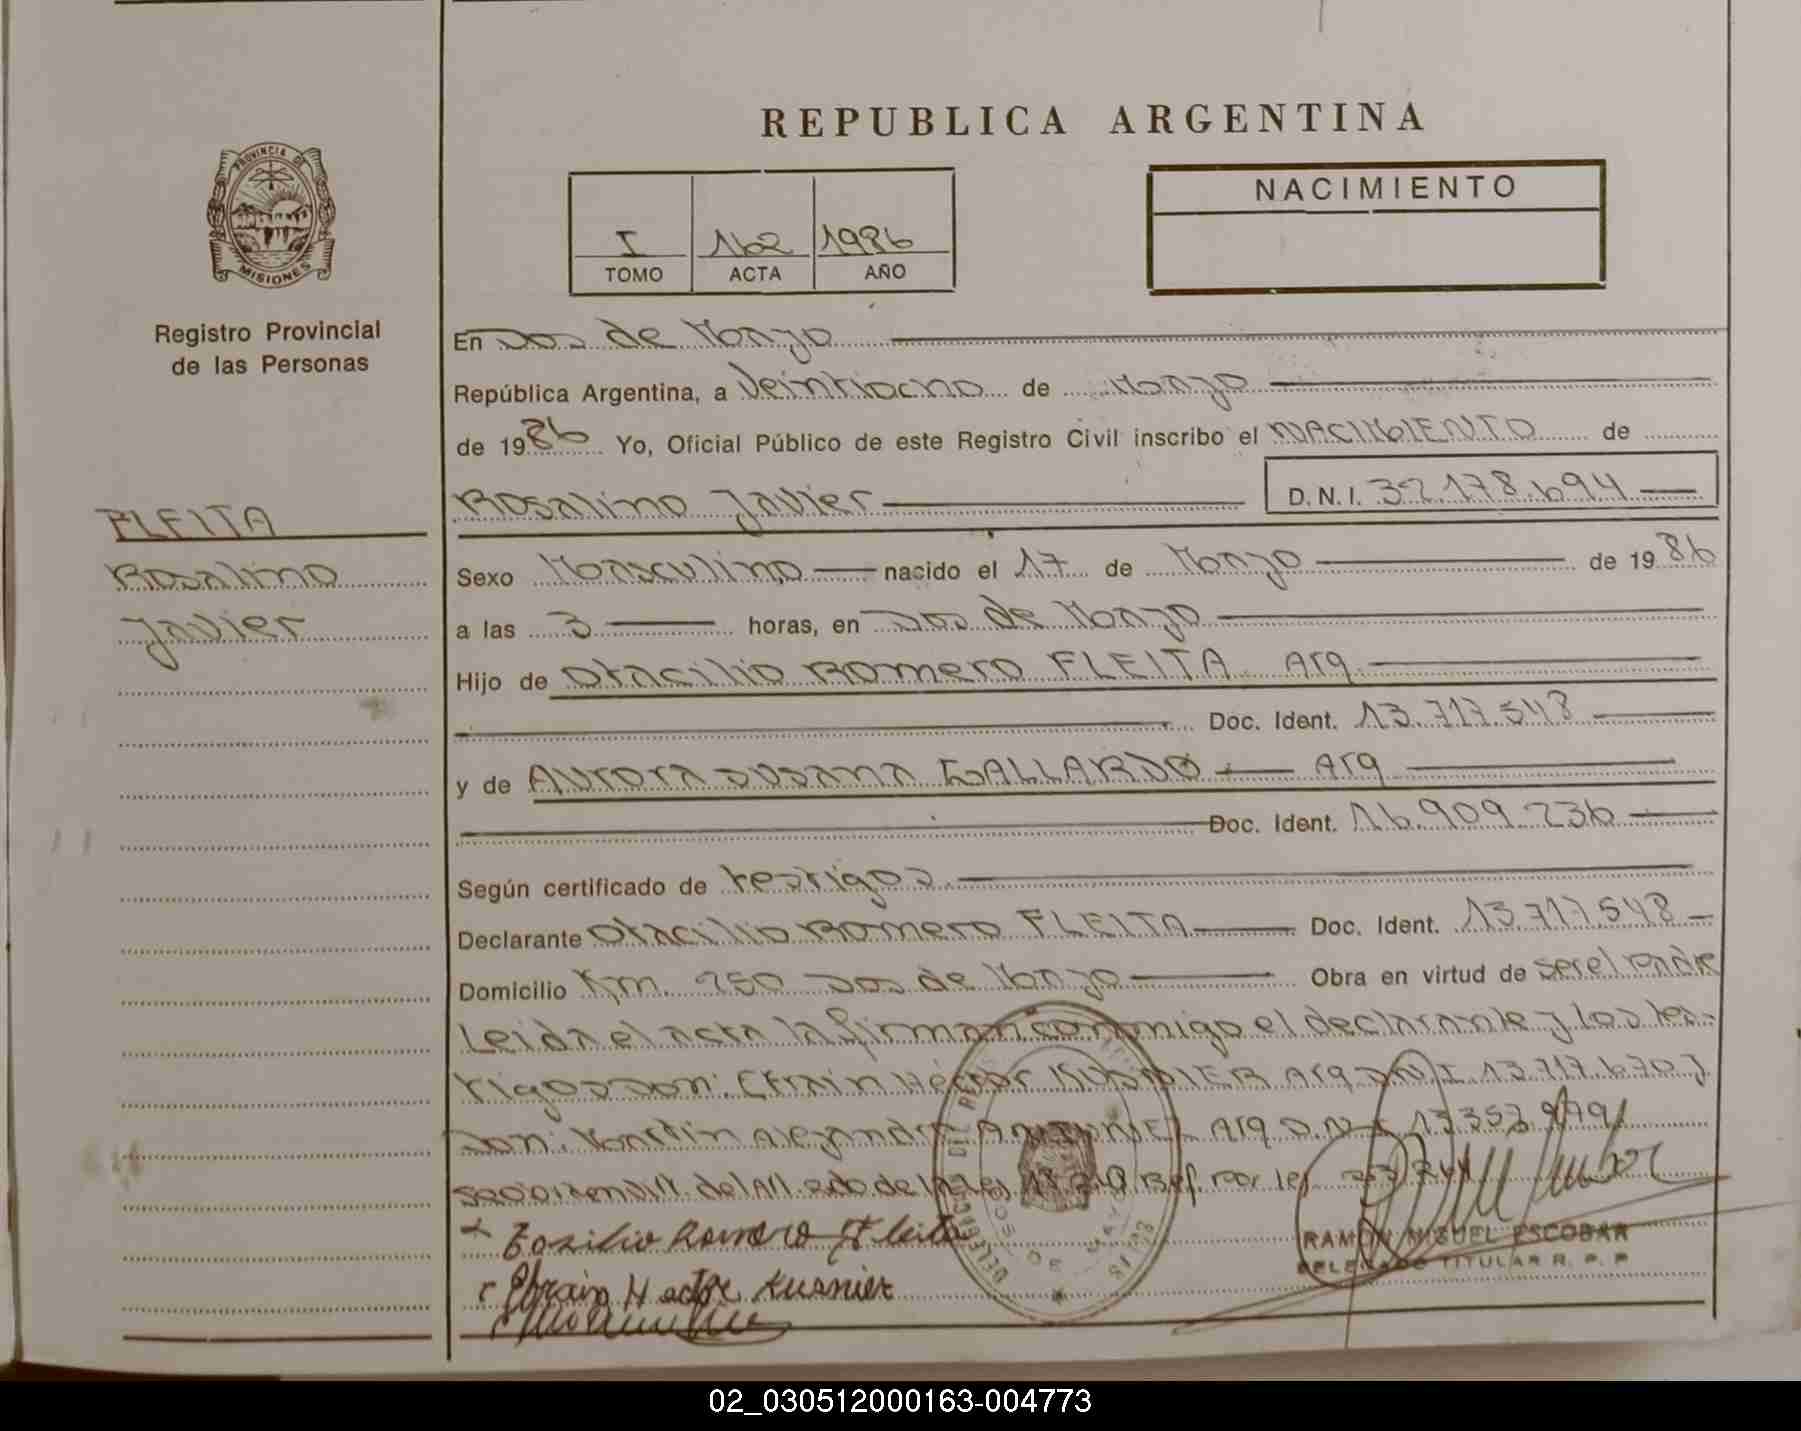 REPUBLICA ARGENTINA
PROVINCIA DE
MISIONES
Registro Provincial
de las Personas
I 162 1986
TOMO ACTA AÑO
NACIMIENTO
En Dos de Mayo
República Argentina, a Veintiocho de Marzo
de 1986 Yo, Oficial Público de este Registro Civil inscribo el NACIMIENTO de
Rosalino Javier D.N.I. 32.178.694
FLEITA
Rosalino
Javier
Sexo Masculino nacido el 17 de Marzo de 1986
a las 3 horas, en Dos de Mayo
Hijo de Otacilio Romero FLEITA Arg
Doc. Ident. 13.717.548
y de Aurora Susana GALLARDO Arg
Doc. Ident. 16.909.236
Según certificado de testigos
Declarante Otacilio Romero FLEITA Doc. Ident. 13.717.548
Domicilio Km. 250 Dos de Mayo Obra en virtud de ser el Padre
Leida el acta la firman conmigo el declarante y los tes-
tigos Don: Efrain Héctor KUSNIER Arg DNI 13.717.670 y
Don: Martin Alejandro Arg D.N.I
del Art. de la Ley Ref. por ley
Romero Fleita
Efrain Hector Kusnier
RAMON MIGUEL ESCOBAR
DELEGADO TITULAR R. P. P.
02_030512000163-004773